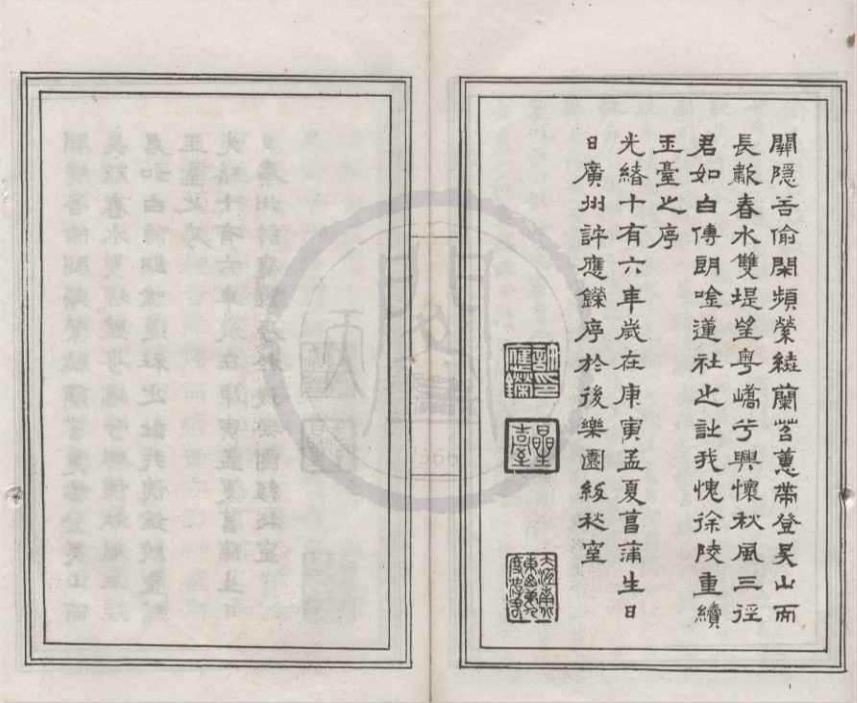 關隱苦偷閑頻縈繞蘭苕蕙帶登吳山而
長歎春水雙堤望粵嶠兮興懷秋風三徑
君如白傅朗唫蓮社之詩我愧徐陵重續
玉臺之序
光緒十有六年歲在庚寅孟夏菖蒲生日
日廣州許應鑅序於後樂園紉秋室
許印應鑅
星臺